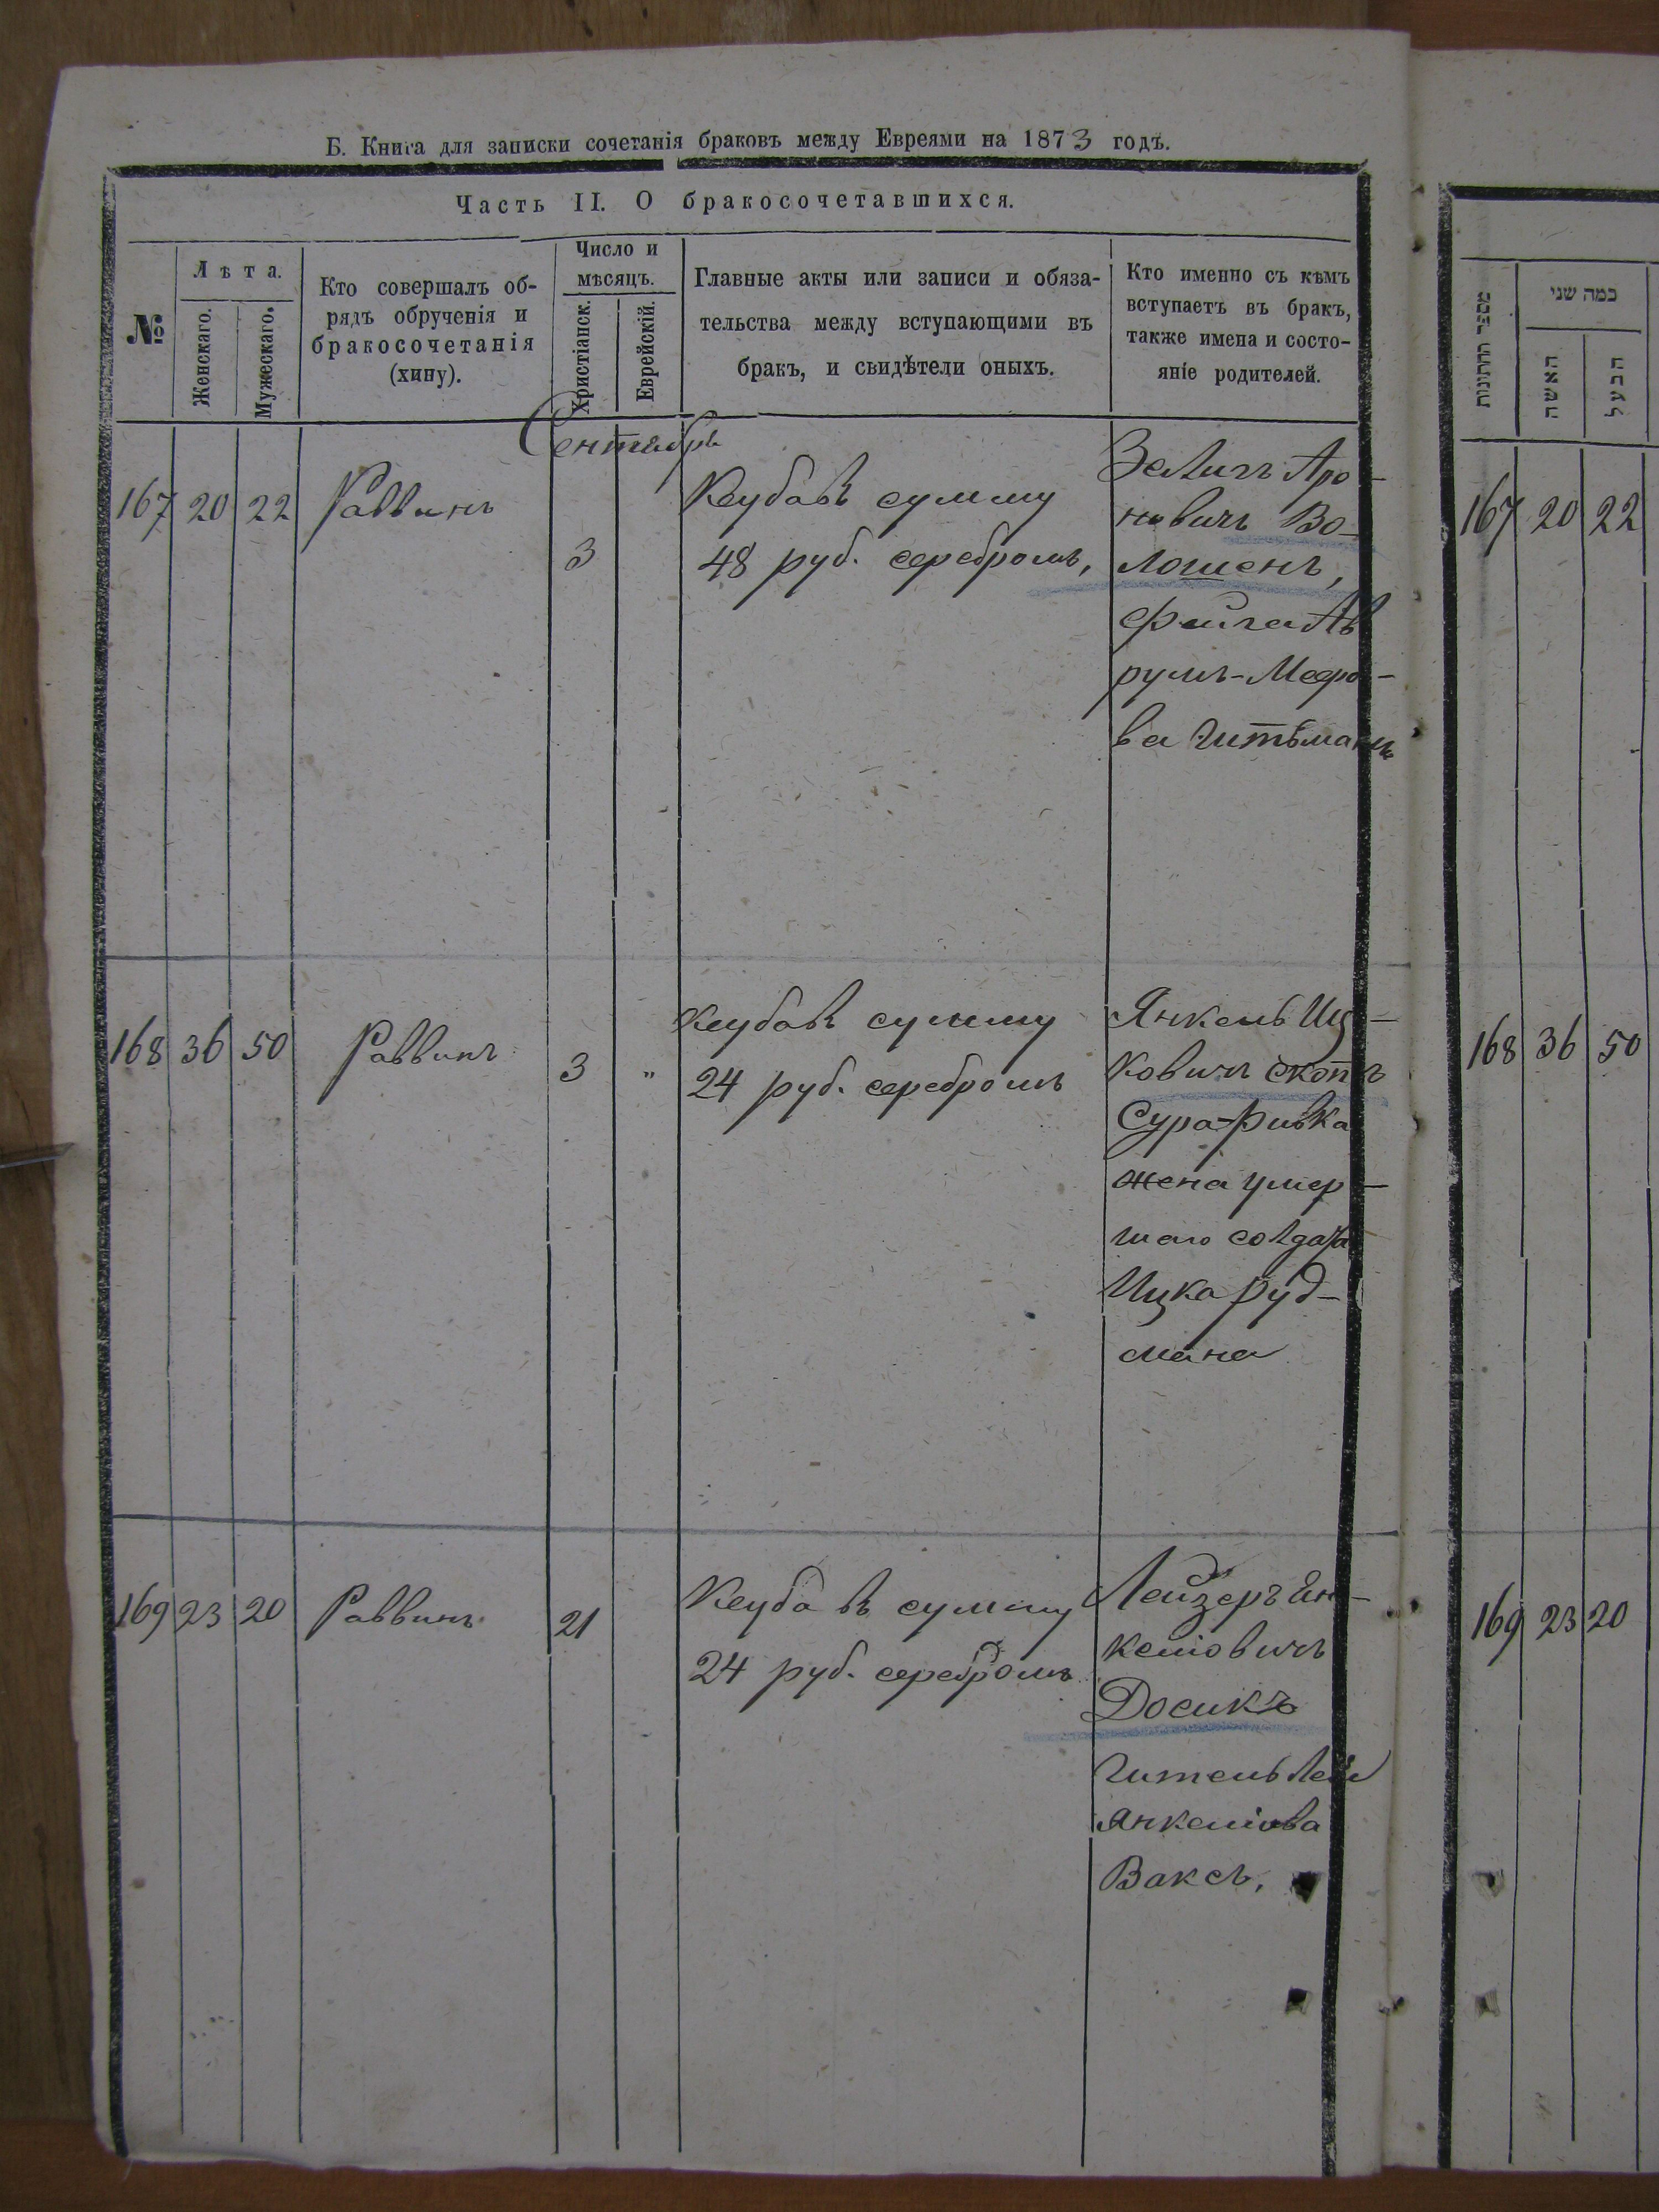 Б. Книга для записки сочетанія браковъ между Евреями на 1873 годъ.
Часть II. О бракосочетавшихся.
№
Лѣта.
Женскаго.
Мужескаго.
Кто совершалъ об-
рядъ обрученія и
бракосочетанія
(хину).
Число и
мѣсяцъ.
Христіанск.
Еврейскій.
Главные акты или записи и обяза-
тельства между вступающими въ
бракъ, и свидѣтели оныхъ.
Кто именно съ кѣмъ
вступаетъ въ бракъ,
также имена и состо-
яніе родителей.
Сентябрь
167 20 22 Раввинъ 3
Кеуба въ сумму
48 руб. серебромъ,
Зелигъ Аро-
новичъ Во-
лошенъ,
Фейга Ав
румъ-Меро-
ва Гитьманъ
168 36 50 Раввинъ 3 "
Кеуба въ сумму
24 руб. серебромъ
Янкель Иц-
ковичъ Скотъ
Сура-Ривка
жена умер-
шаго солдата
Ицка Руд-
мана
169 23 20 Раввинъ 21
Кеуба въ сумму
24 руб. серебромъ
Лейзеръ Ян-
келіовичъ
Досикъ
Гитель Лея
Янкеліова
Ваксъ,
מספר החתונות
כמה שני
האשה
הבעל
167 20 22
168 36 50
169 23 20